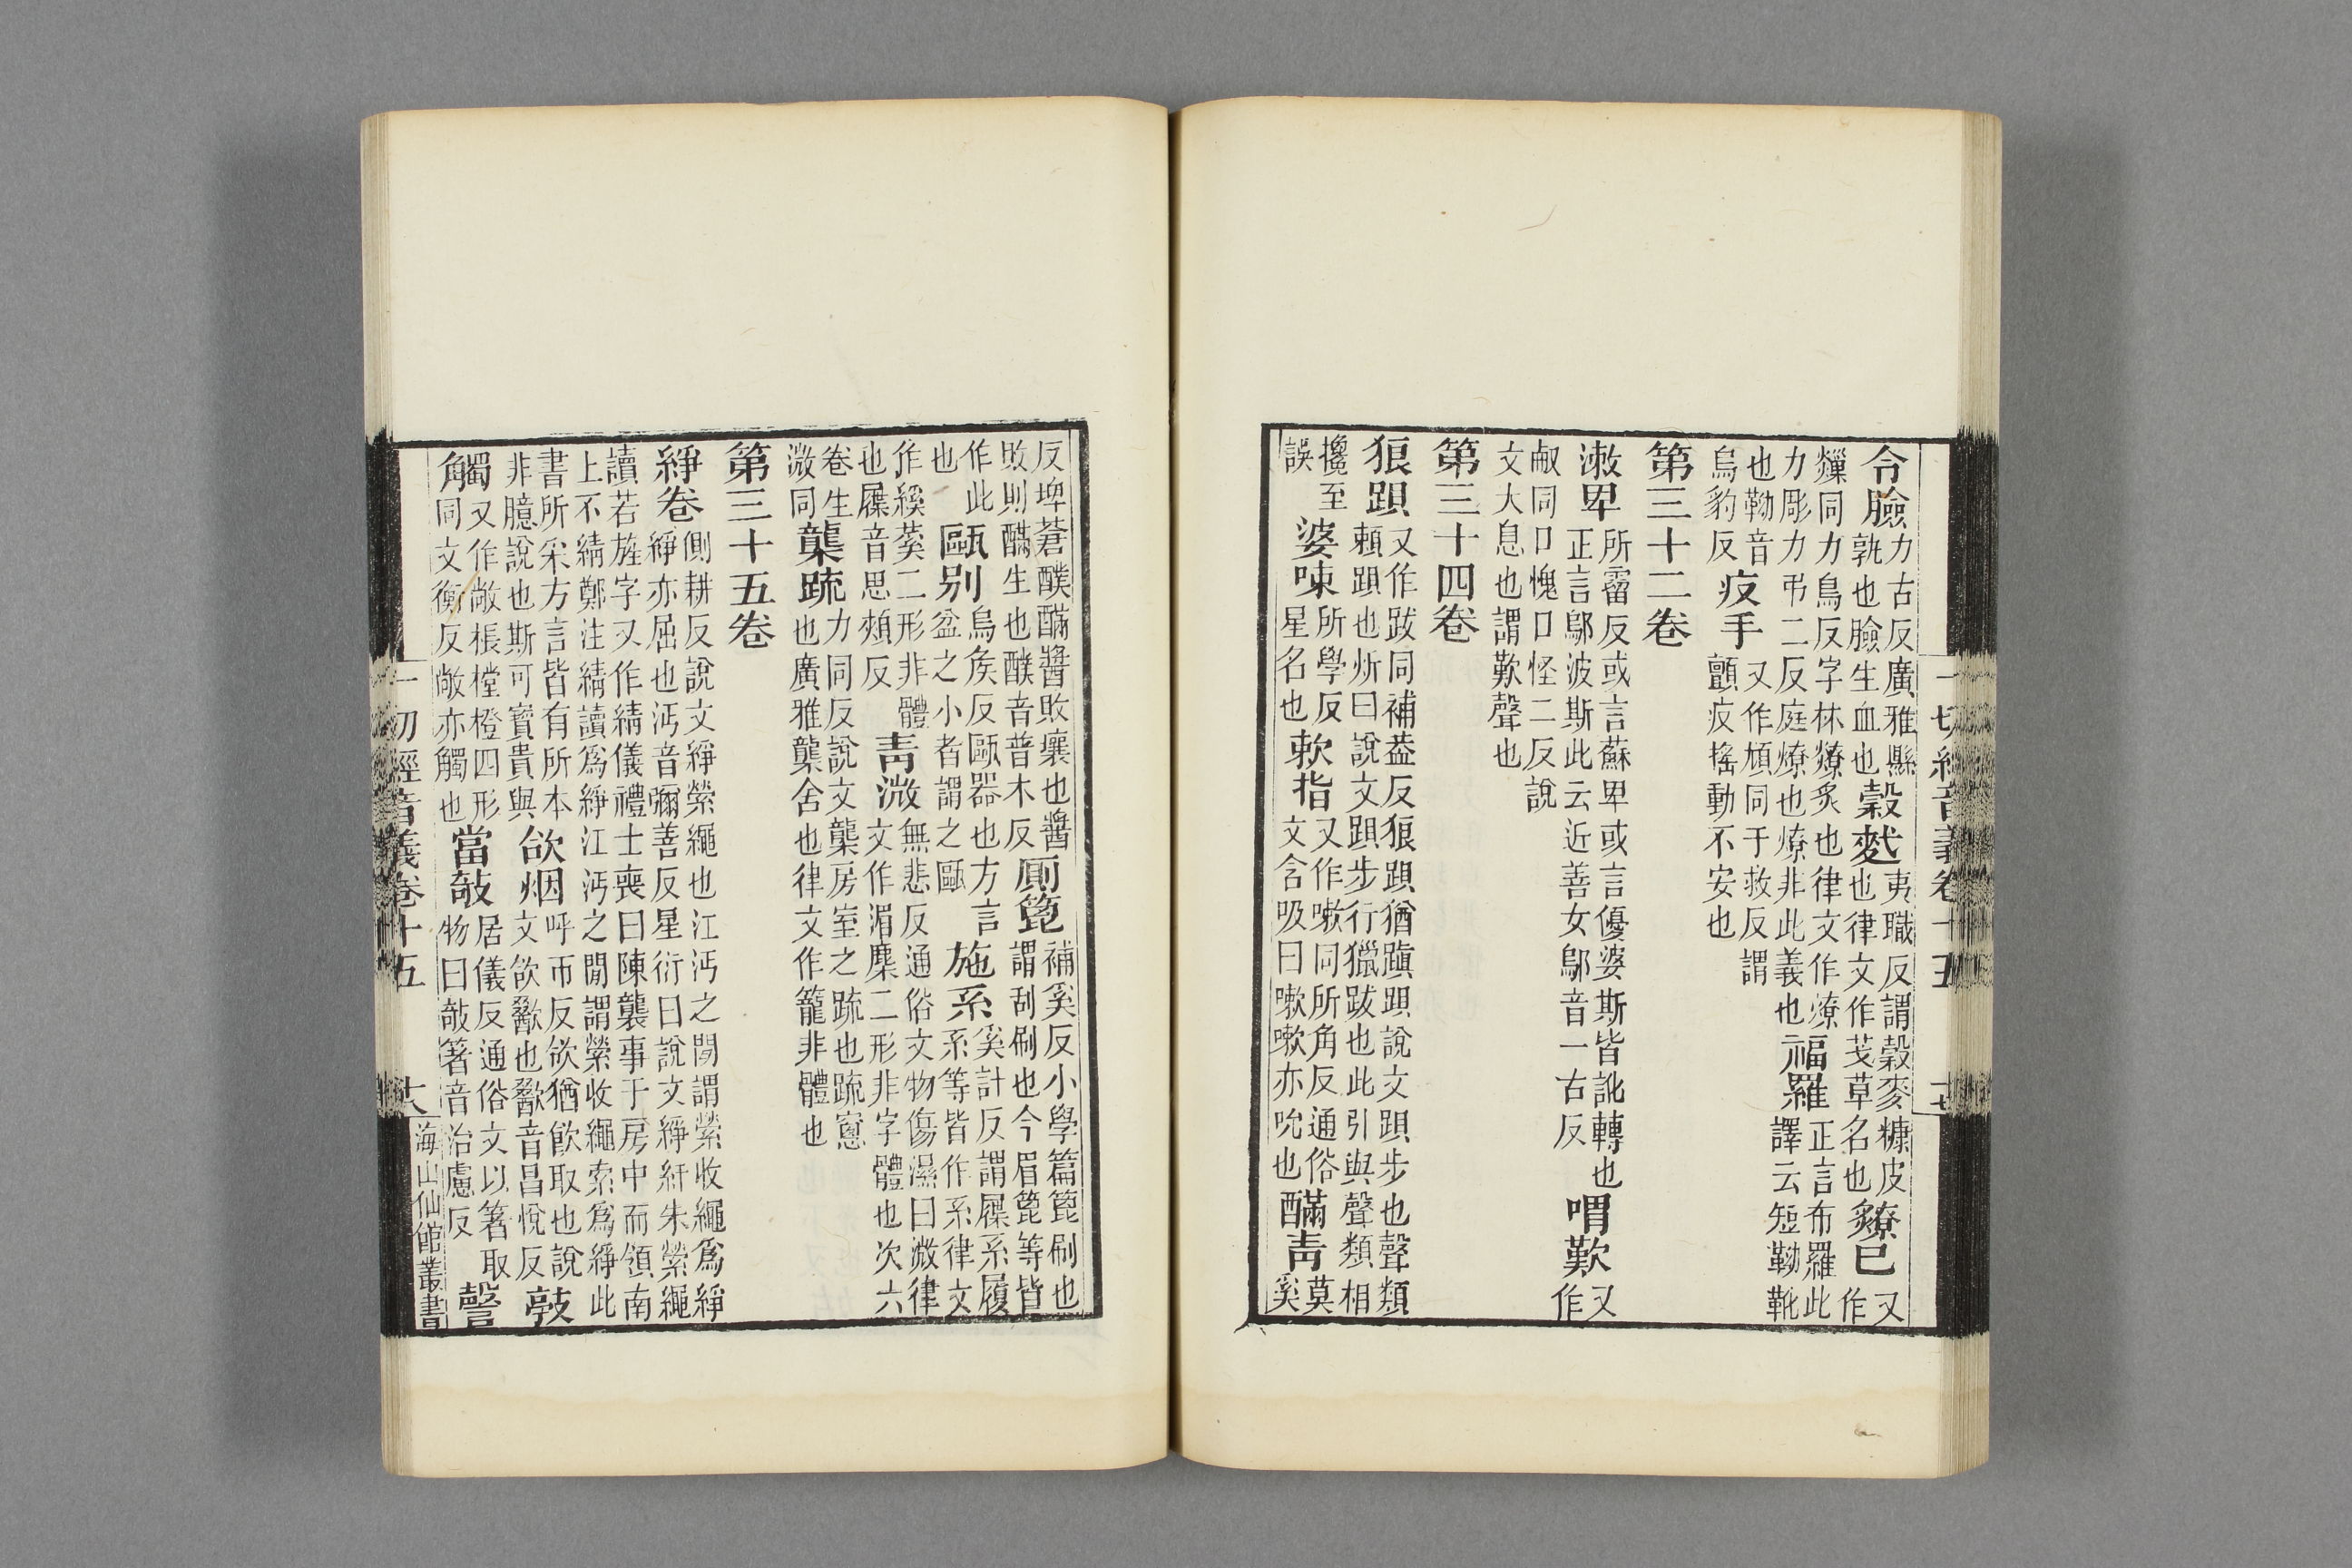 令臉力古反廣雅縣孰也臉生血也穀䴬夷職反謂穀麥糠皮也律文作芅草名也䝤已又作
爒同力鳥反字林爒炙也律文作燎力彫力弔二反庭燎也燎非此義也福羅正言布羅此譯云短靿靴
也靿音烏豹反疚手又作頄同于救反謂顫疚搖動不安也
第三十二卷
漱卑所霤反或言蘇卑或言優婆斯皆訛轉也正言鄔波斯此云近善女鄔音一古反喟歎又作
㕟同口愧口怪二反說文大息也謂歎聲也
第三十四卷
狼䟺又作跋同補葢反狼䟺猶蹎䟺說文䟺步也聲類賴䟺也炘曰說文䟺步行獵跋也此引與聲類相
攙至誤婆㖨所學反星名也欶指又作嗽同所角反通俗文含吸曰嗽嗽亦吮也䤍青莫奚
一切經音義卷十五 十七
反埤蒼醭䤍醬敗壞也醬敗則䤍生也醭音普木反廁篦補奚反小學篇篦刷也謂刮刷也今眉篦等皆
作此也甌別烏矦反甌器也方言盆之小者謂之甌施系奚計反謂屧系履系等皆作系律文
作葜二形非體也屧音思頰反青溦無悲反通俗文物傷濕曰溦律文作湄麋二形非字體也次六
卷生溦同櫳疏力同反說文櫳房室之疏也疏窻也廣雅櫳舍也律文作籠非體也
第三十五卷
䋫卷側耕反說文䋫縈繩也江沔之閒謂縈收繩爲䋫䋫亦屈也沔音彌善反星衍曰說文䋫紆朱縈繩
讀若旌字又作綪儀禮士喪曰陳襲事于房中而領南上不綪鄭注綪讀爲䋫江沔之閒謂縈收繩索爲䋫此
書所采方言皆有所本非臆說也斯可寶貴與欱烟呼帀反欱猶飮取也說文欱歠也歠音昌悅反敱
觸又作敞棖樘橙四形角同文衡反敞亦觸也當敧居儀反通俗文以箸取物曰敧箸音治慮反謦
一切經音義卷十五 十八 海山仙館叢書